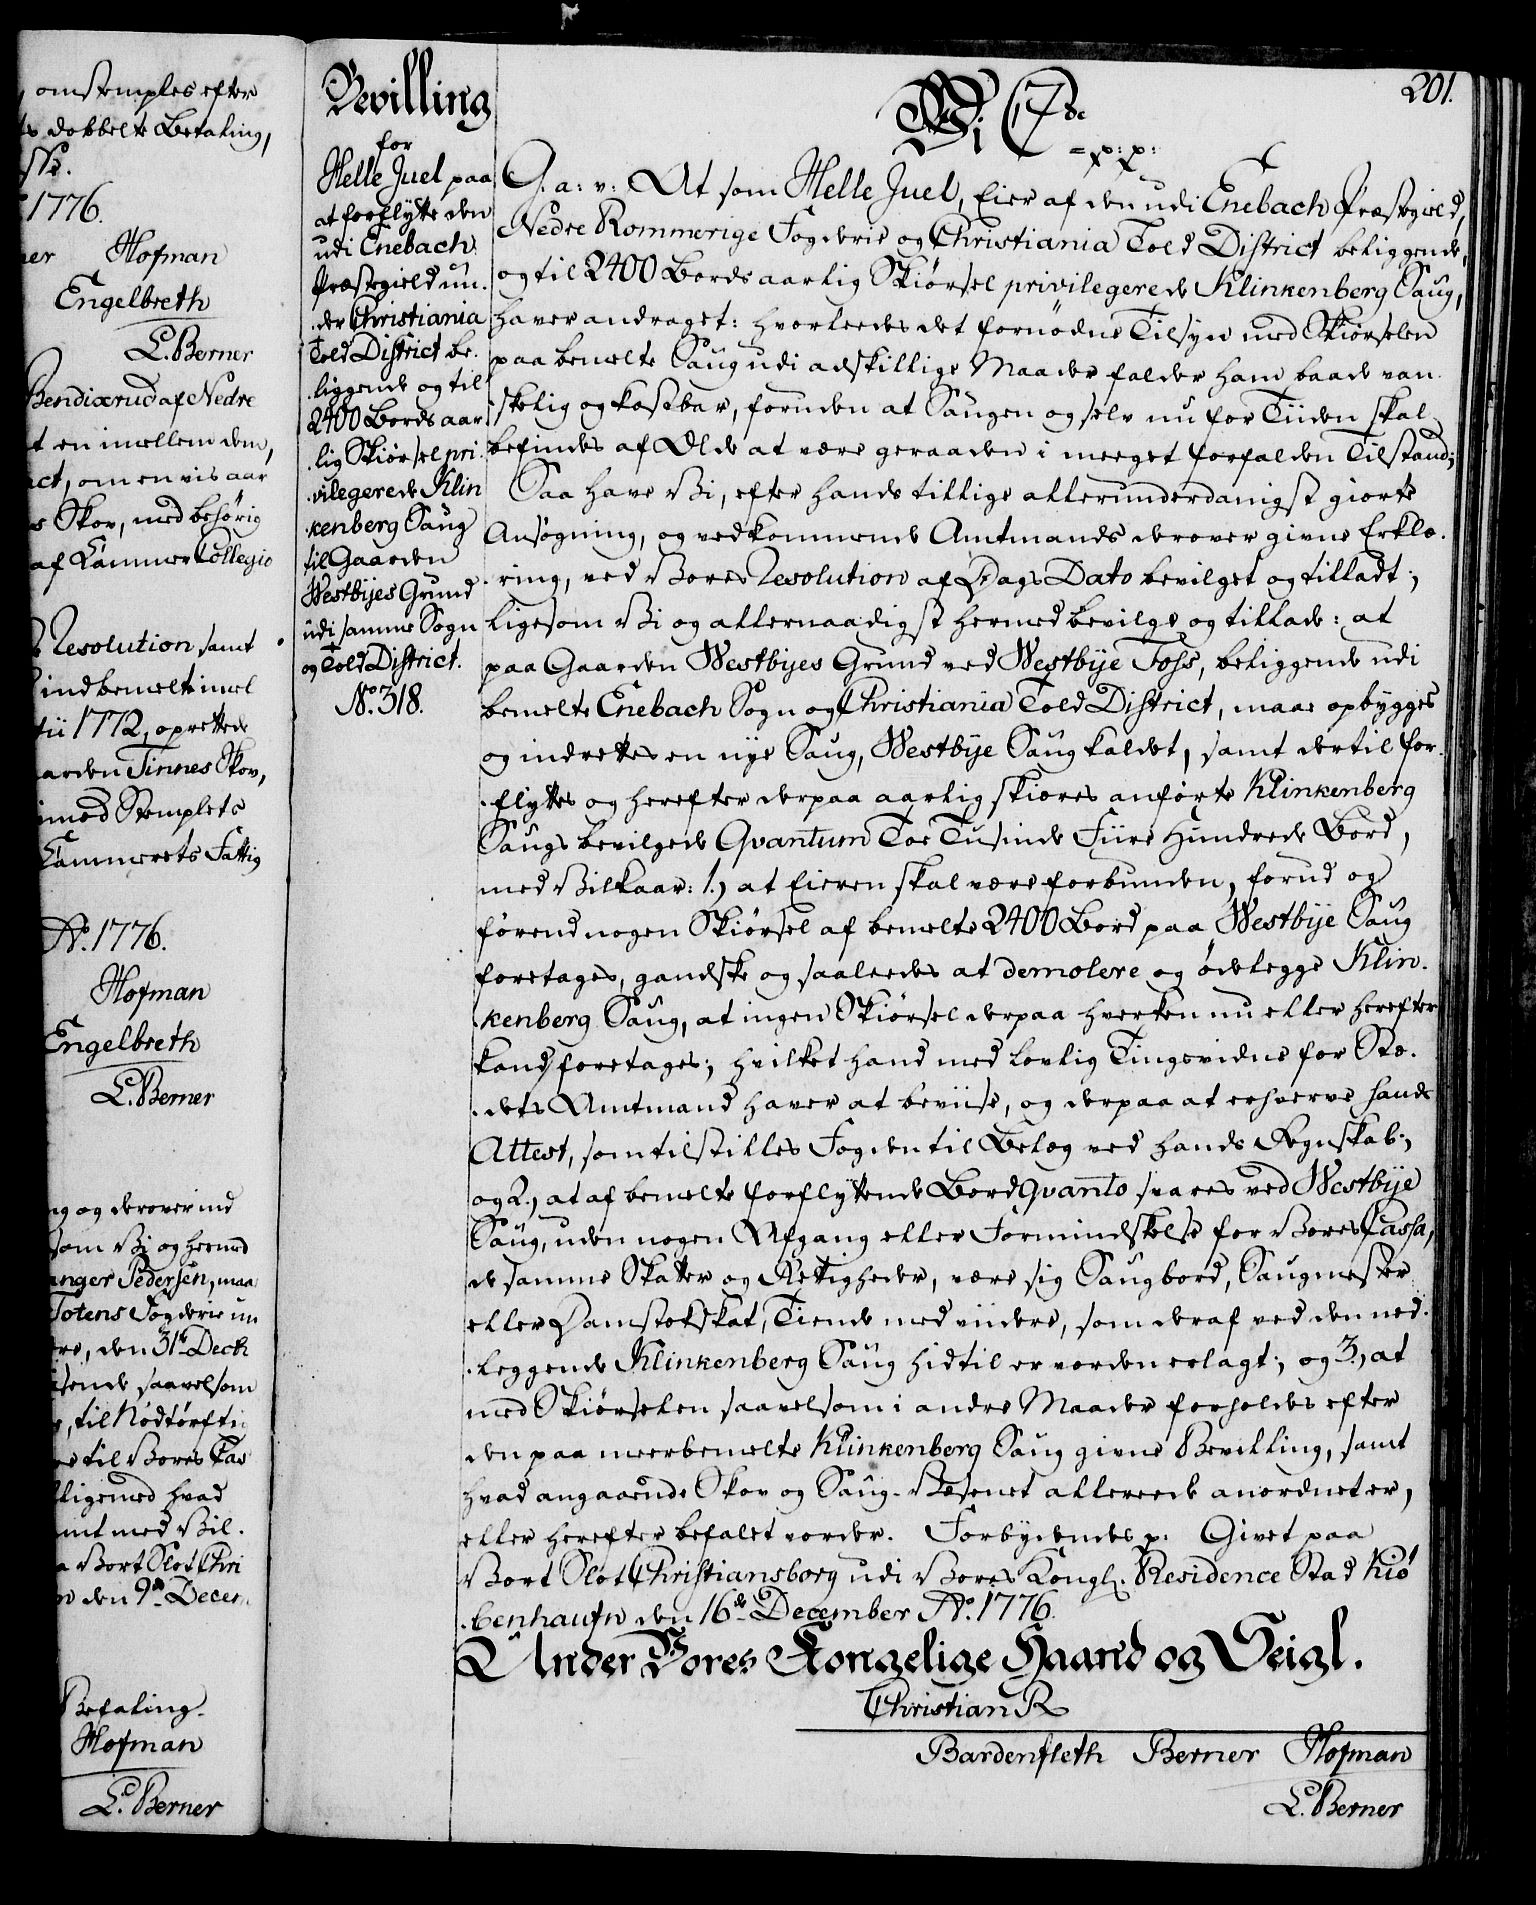 , omstemples efter
ts dobbelte Betaling,
1776.
Hofman
Engelbreth
L. Berner
Bendixrud af Nedre
t en imellem dem,
act, om en vis aar
s Skov, med behörig
af Cammer Collegio
Resolution samt
ind bemelte imel
tii 1772, oprettede
aarden Tinnes Skov,
imod Stemplets
Cammerets Fattig
Ao. 1776.
Hofman
Engelbreth
L. Berner
ng og derover ind
som Vi og hermed
anger Pedersen, maa
Totens Fogderie un
ere, den 31te Decbr
isende saavelsom
s, til Nödtörfti
re til Vores Cas
lligemed hvad
amt med Vil.
a Vort Slot Chri
n den 9de Decem
Befaling.
Hofman
L. Berner
Bevilling
for
Helle Juel paa
at forflytte den
udi Enebach
Præstegield un.
.der Christiania
Told District be.
.liggende og til
2400 Bords aar.
.lig Skiörsel pri.
.vilegerede Klin
.kenberg Saug
til Gaarden
Westbyes Grund
udi samme Sogn
og Told District.
No. 318.
201.
Wi C 7de
=p: p:
G. a: v: At som Helle Juel, Eier af den udi Enebach Præstegield,
Nedre Rommerige Fogderie og Christiania Told District beliggende,
og til 2400 Bords aarlig Skiörsel privilegerede Klinkenberg Saug,
haver andraget: hvorleedes det fornödne Tilsyn med Skiörselen
paa bemelte Saug udi adskillige Maader falder ham baade van.
.skelig og kostbar, foruden at Saugen og selv nu for Tiiden skal
befindes af Ælde at være geraaden i meeget forfalden Tilstand;
Saa have Vi, efter hands tillige allerunderdanigst giorte
Ansögning, og vedkommende Amtmands derover givne Erklæ.
.ring, ved Vores Resolution af Dags Dato bevilget og tilladt;
ligesom Vi og allernaadigst hermed bevilge og tillade: at
paa Gaarden Westbyes Grund ved Westbye Foss, beliggende udi
bemelte Enebach Sogn og Christiania Told District, maae opbygges
og indrettes en nye Saug, Westbye Saug kaldet, samt dertil for.
.flyttes og herefter derpaa aarlig skiæres anförte Klinkenberg
Saugs bevilgede Qvantum Toe Tusinde Fiire Hundrede Bord,
med Vilkaar: 1.) at Eieren skal være forbunden, forud og
förend nogen Skiörsel af bemelte 2400 Bord paa Westbye Saug
foretages, gandske og saaleedes at demolere og ödelegge Klin.
.kenberg Saug, at ingen Skiörsel derpaa hverken nu eller herefter
kand foretages; hvilket hand med lovlig Tingsvidne for Stæ.
.dets Amtmand haver at beviise, og derpaa at erhverve hands
Attest, som tilstilles Fogden til Belæg ved hands Regnskab;
og 2.) at af bemelte forflyttende Bord Qvanto svares ved Westbye
Saug, uden nogen Afgang eller Formindskelse for Vores Cassa,
de samme Skatter og Rettigheder, være sig Saugbord, Saugmester
eller Damstokskat, Tiende med viidere, som deraf ved den ned.
.leggende Klinkenberg Saug hidtil er vorden erlagt; og 3.) at
med Skiörselen saavelsom i andre Maader forholdes efter
den paa meerbemelte Klinkenberg Saug givne Bevilling, samt
hvad angaaende Skov og Saug-Væsenet allereede anordnet er,
eller herefter befalet vorder. Forbydendes p: Givet paa
Vort Slot Christiansborg udi Vores Kongl. Residence Stad Kiö
.benhaufn den 16de December Ao. 1776.
Under Vores Kongelige Haand og Seigl.
Christian R
Bardenfleth Berner Hofman
L. Berner